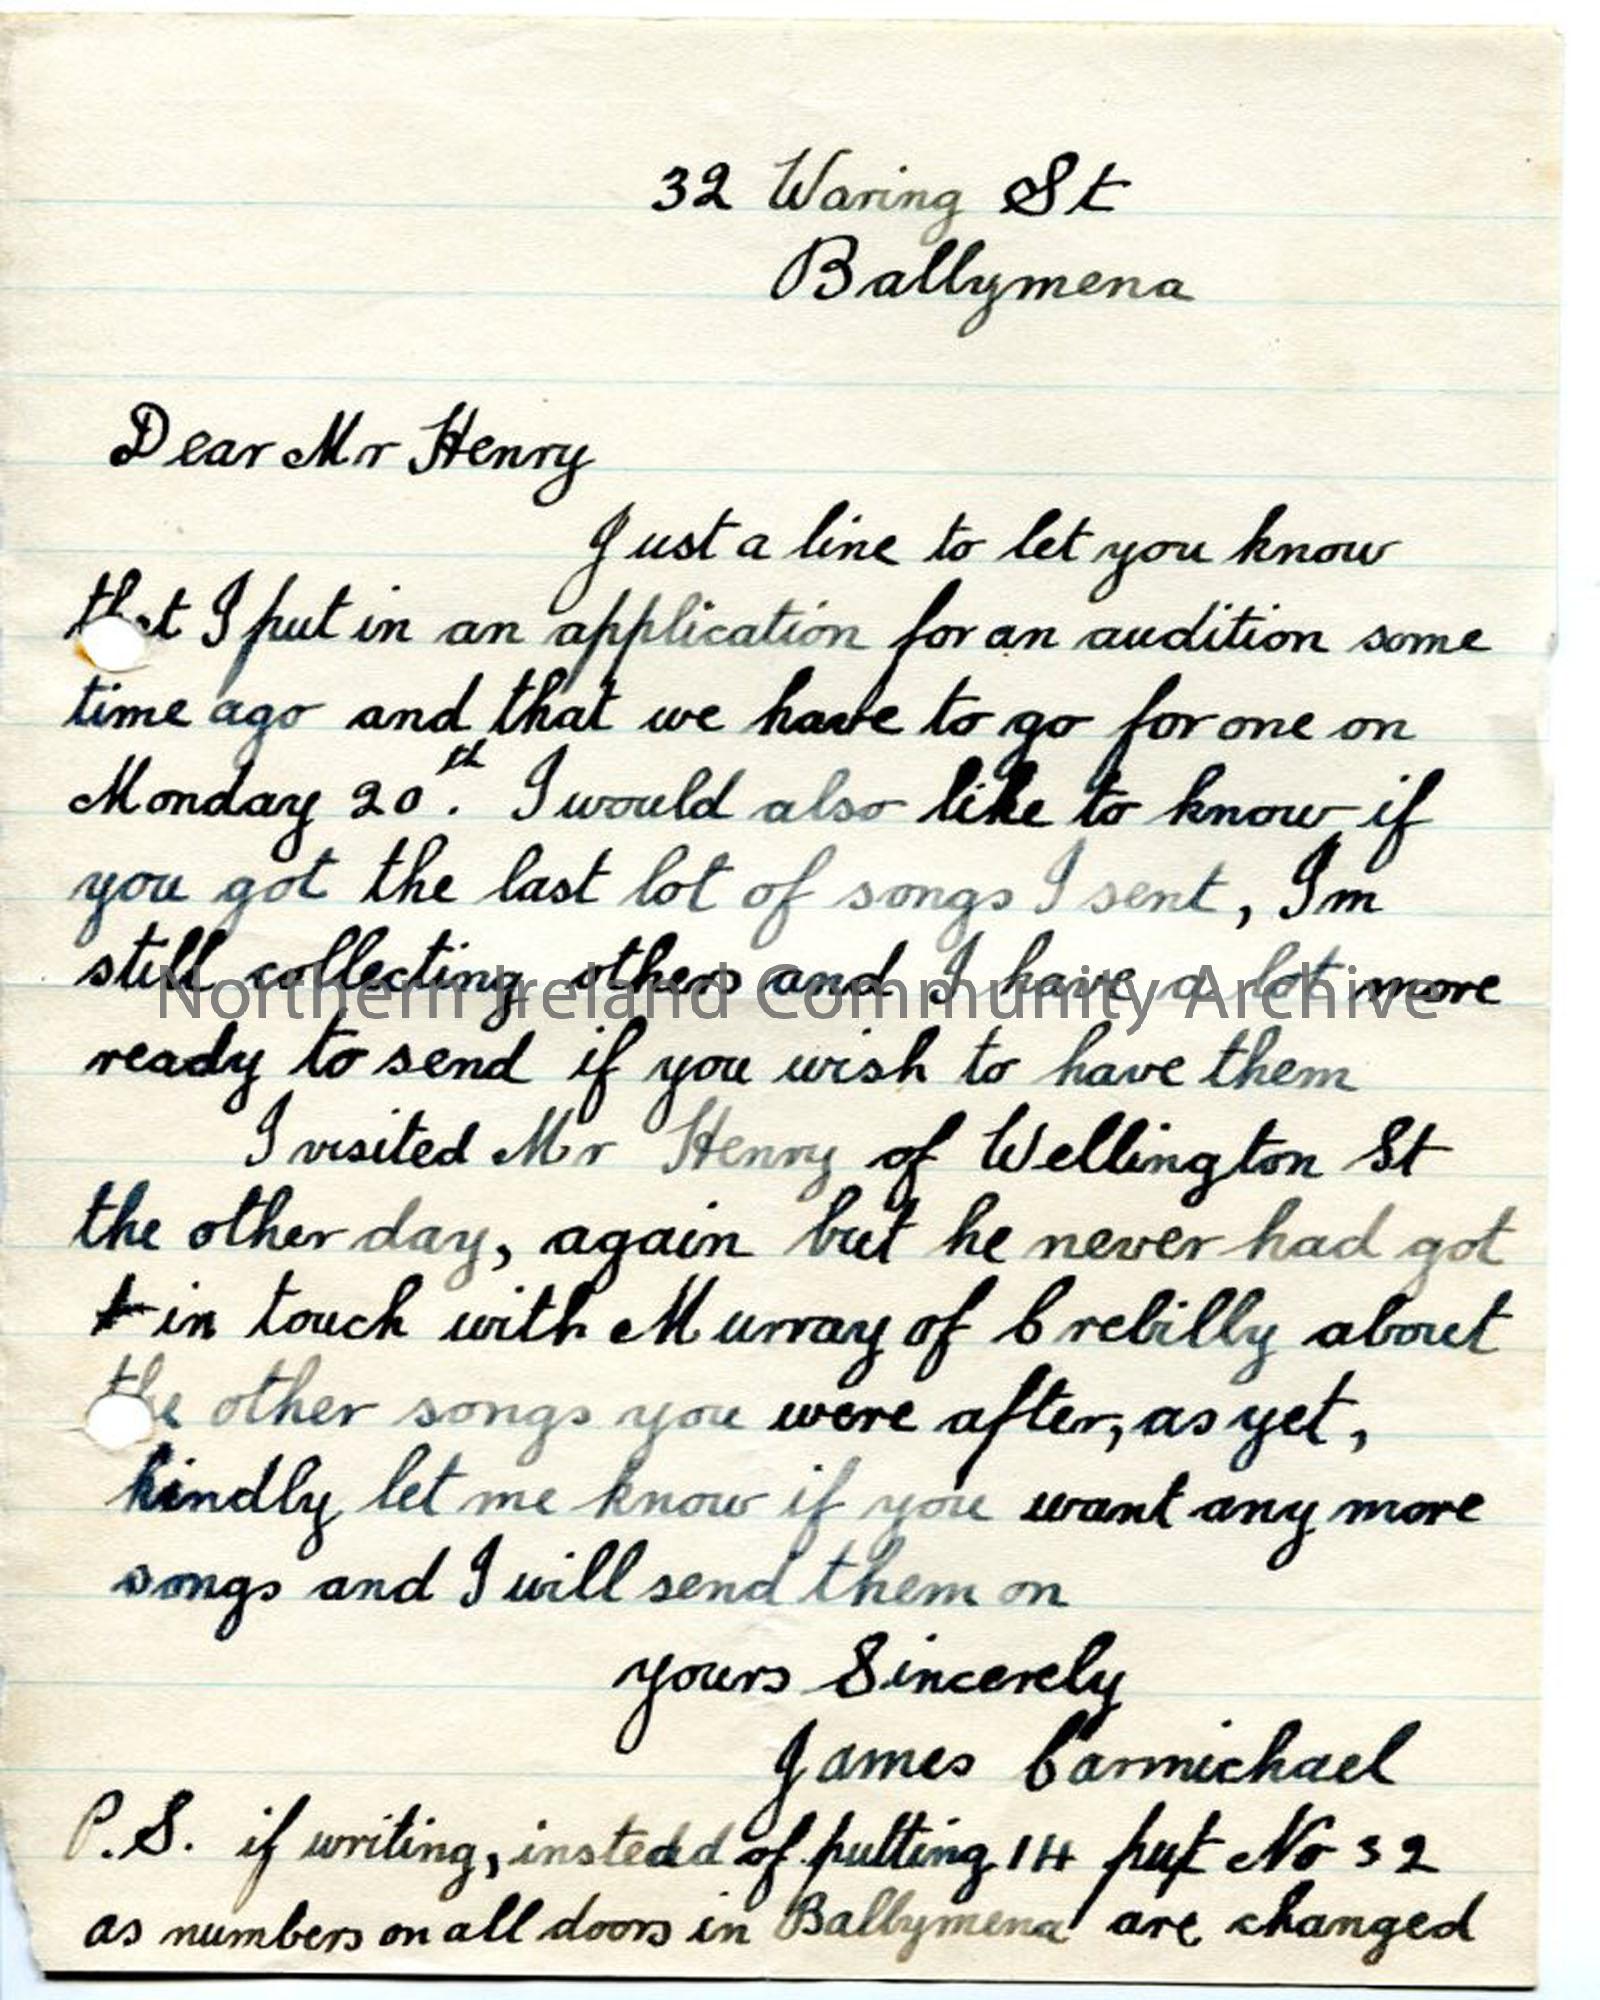 32 Waring St
Ballymena
Dear Mr Henry
Just a line to let you know
that I put in an application for an audition some
time ago and that we have to go for one on
Monday 20th. I would also like to know if
you got the last lot of songs I sent, Im
still collecting others and I have a lot more
Northern Ireland Community Archive
ready to send if you wish to have them
I visited Mr Henry of Wellington St
the other day, again but he never had got
in touch with Murray of Crebilly about
the other songs you were after, as yet,
kindly let me know if you want any more
songs and I will send them on
yours Sincerely
James Carmichael
P.S. if writing, instead of putting 14 put No 32
as numbers on all doors in Ballymena are changed